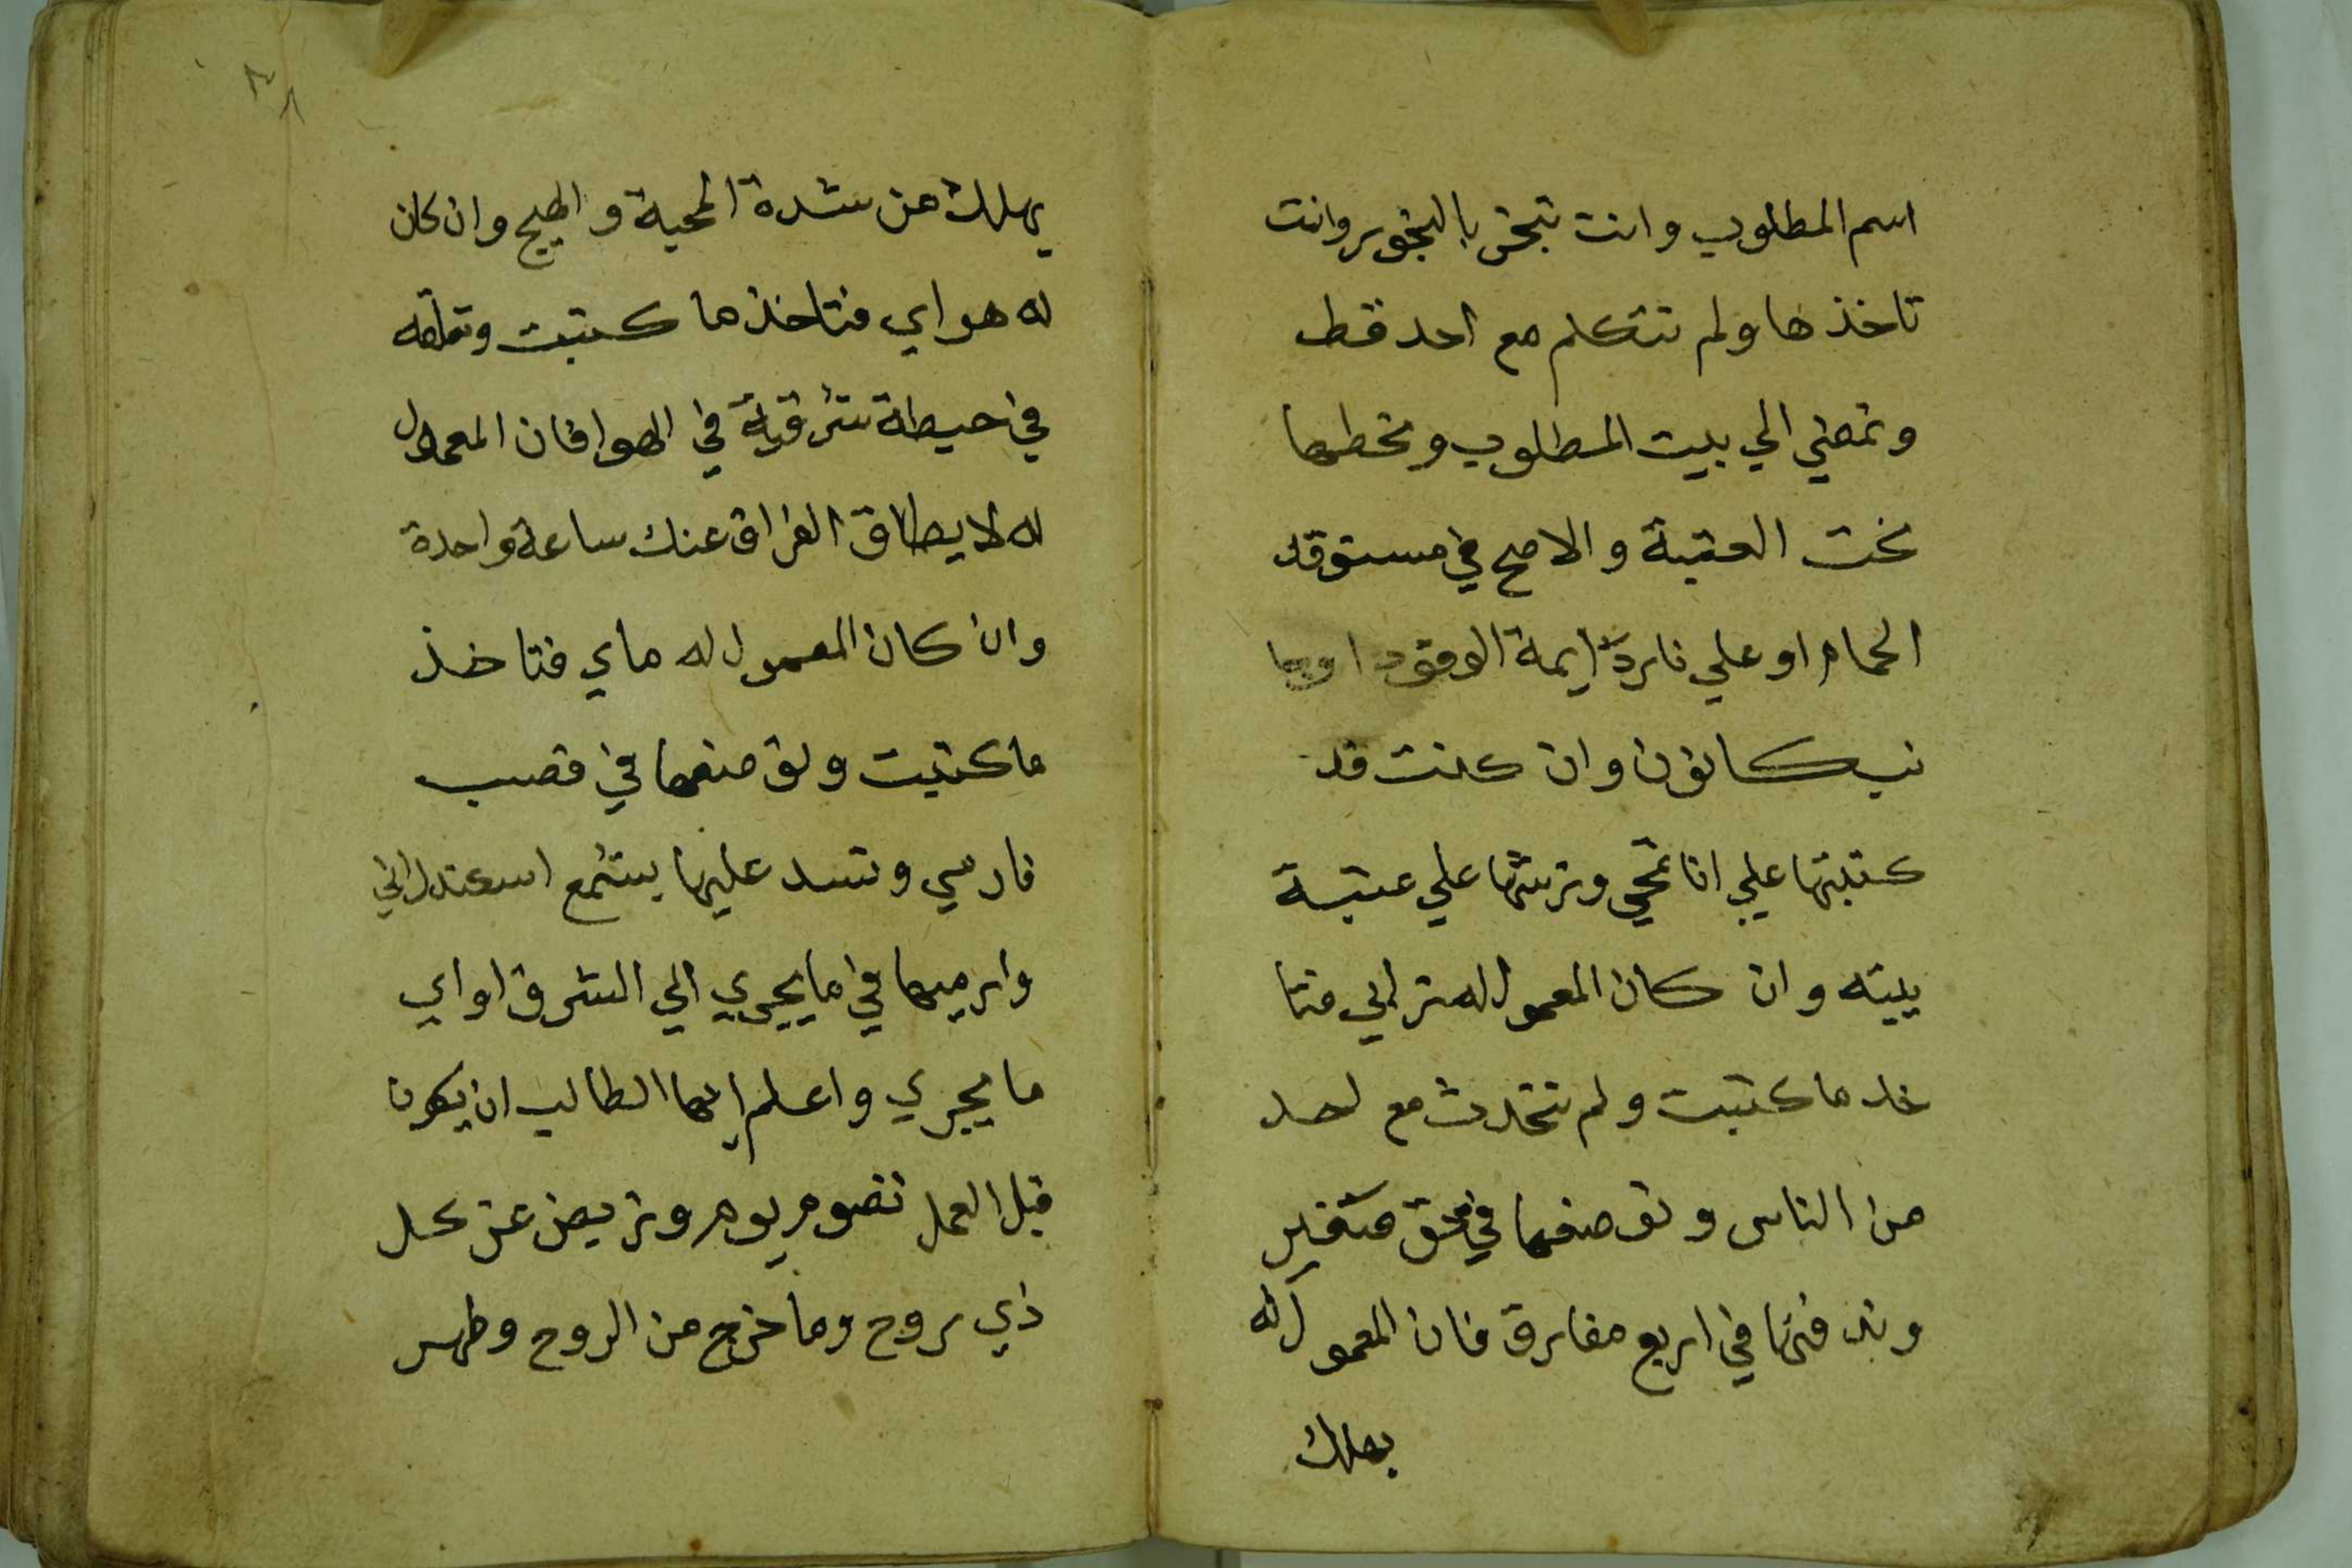 اسم المطلوب وانت تبخر بالبخور وانت
تاخذها ولم تتكلم مع احد قط
وتمضي الي بيت المطلوب وتحطها
تحت العتبة والاصح في مستوقد
الحمام او علي نار دايمة الوقود او بجا
نب كانون وان كنت قد
كتبتها علي انا تمحي وترشها علي عتبة
بيته وان كان المعمول له ترابي فتا
خد ما كتبت ولم تتحدث مع احد
من الناس وتوضعها في حق صغير
وتدفنها في اربع مفارق فان المعمول له
يهلك
٣٨
يهلك من شدة المحبة والهيج وان كان
له هواي فتاخذ ما كتبت وتعلقه
في حيطة شرقية في الهوا فان المعمول
له لا يطاق الفراق عنك ساعة واحدة
وان كان المعمول له ماي فتاخذ
ما كتبت وتوضعها في قصب
فارسي وتسد عليها بشمع اسكندراني
وارميها في ما يجري الي الشرق او اي
ما يجري واعلم ايها الطالب ان يكون
قبل العمل تصوم يوم وتريض عن كل
ذي روح وما خرج من الروح وطهر